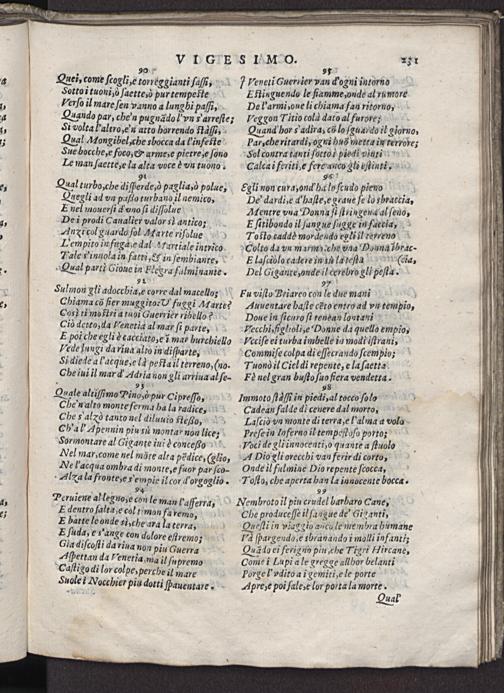 VIGESIMO. 231
90
Quei, come scogli, e torreggianti sassi,
Sotto i tuoni, ò saette, ò pur tempeste
Verso il mare sen vanno a lunghi passi,
Quando par, che'n pugnãdo l'vn s'arreste;
Si volta l'altro, e'n atto horrendo stàssi,
Qual Mongibel, che sbocca da l'infeste
Sue bocche, e foco, & arme, e pietre, e sono
Le man saette, e la alta voce è vn tuono.
91
Qual turbo, che disperde, ò paglia, ò polue,
Quegli ad vn passo turbano il nemico,
E nel mouersi d'vno si dissolue
De i prodi Canalier valor sì antico;
Anzi col guardo sol Marte risolue
L'empito in fuga, e dal Martiale intrico
Tale s'inuola in fatti, & in sembiante,
Qual partì Gioue in Flegra fulminante.
92
Sulmon gli adocchia, e corre dal macello;
Chiama cõ fier muggito: V fuggi Marte?
Così ti mostri a tuoi Guerrier ribello?
Ciò detto, da Venetia al mar si parte,
E poi che egli è cacciato, e'i mar burchiello
Vede lungi da riua alto in disparte,
Si diede a l'acque, e là pesta il terreno, (no.
Che iui il mar d'Adria non gli arriua al se-
93
Quale altissimo Pino, ò pur Cipresso,
Che'n alto monte ferma ha la radice,
Che s'alzò tanto nel diluuio stesso,
Ch'a l'Apennin piu sù montar non lice;
Sormontare al Gigante iui è concesso
Nel mar, come nel mõte alta pẽdice, (glio,
Ne l'acqua ombra di monte, e fuor par sco-
Alza la fronte, e s'empie il cor d'orgoglio.
94
Peruiene al legno, e con le man l'afferra,
E dentro salta, e col timon fa remo,
E batte le onde sì, che ara la terra,
E suda, e s'ange con dolore estremo;
Già discosti da riua non piu Guerra
Aspettan da Venetia, ma il supremo
Castigo di lor colpe, perche il mare
Suole i Nocchier piu dotti spauentare.
95
I Veneti Guerrier van d'ogni intorno
Estinguendo le fiamme, onde al rumore
De l'armi, oue li chiama fan ritorno,
Veggon Titio colà dato al furore;
Quand'hor s'adira, cõ lo sguardo il giorno,
Par, che ritardi, ogni huõ metta in terrore;
Sol contra tanti sotto i piedi vinti
Calca i feriti, e fere anco gli estinti.
96
Egli non cura, ond'ha lo scudo pieno
De' dardi, e d'haste, e graue se lo sbraccia,
Mentre vna Donna si stringena al seno,
E stillando il sangue sugge in faccia,
Tosto caddè mordendo egli il terreno
Colto da vn marmo: che vna Donna sbrac-
E lasciòlo cadere in sù la testa (cia,
Del Gigante, onde il cerebro gli pesta.
97
Fu visto Briareo con le due mani
Auuentare haste cẽto entro ad vn tempio,
Doue in sicuro si tenean lontani
Vecchi, figlioli, e Donne da quello empio,
Vccise ei turba imbelle in modi strani,
Commise colpa di essecrando scempio;
Tuonò il Ciel di repente, e la saetta
Fè nel gran busto suo fiera vendetta.
98
Immoto stàssi in piedi, al tocco solo
Cadean falde di cenere dal morto,
Lasciò vn monte di terra, e l'alma a volo
Prese in Inferno il tempestoso porto;
Voci de gli innocenti, o quante a stuolo
A Dio gli orecchi van ferir di corto,
Onde il fulmine Dio repente scocca,
Tosto, che aperta han la innocente bocca.
99
Nembroto il piu crudel barbaro Cane,
Che producesse il sangue de' Giganti,
Questi in viaggio anco le membra humane
Và spargendo, e sbranando i molli infanti;
Quãdo ei ferigno piu, che Tigri Hircane,
Come i Lupi a le gregge allhor belanti
Porge l'vdito a i gemiti, e le porte
Apre, e poi sale, e lor porta la morte.
Qual'